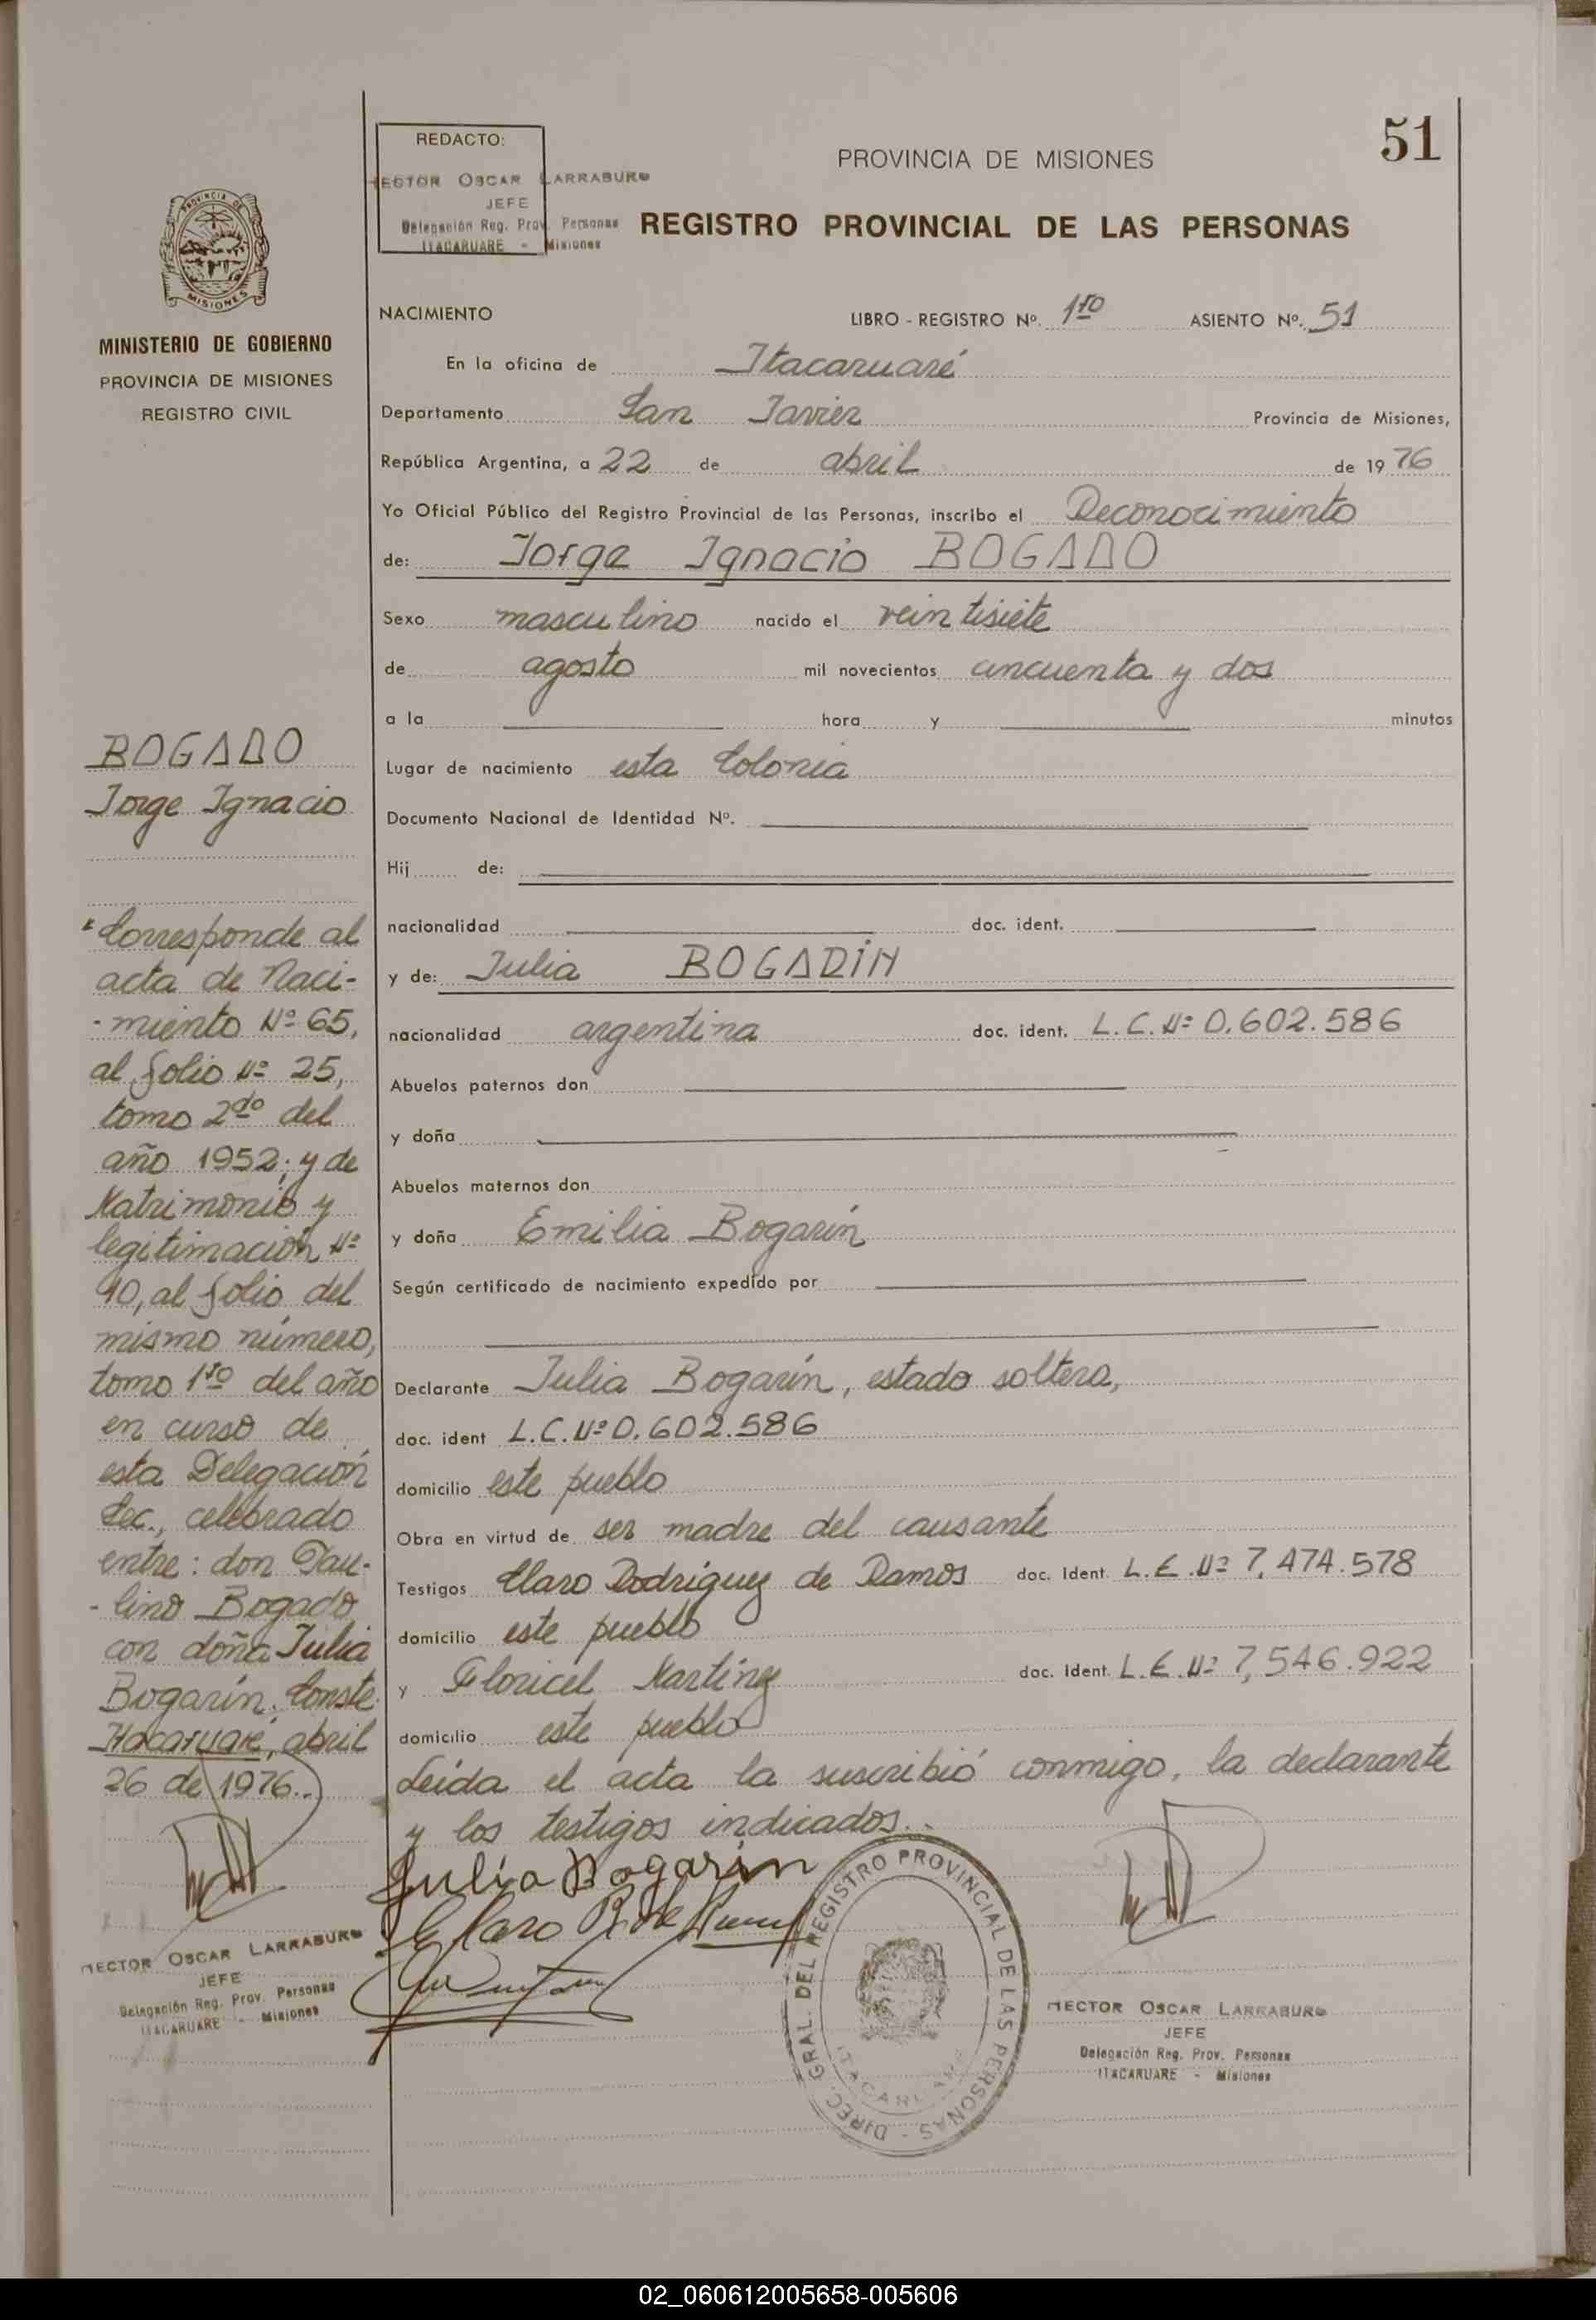 51
REDACTO:
HECTOR OSCAR LARRABURU
JEFE
Delegación Reg. Prov. Personas
ITACARUARE - Misiones
PROVINCIA DE MISIONES
REGISTRO PROVINCIAL DE LAS PERSONAS
PROVINCIA DE
MISIONES
MINISTERIO DE GOBIERNO
PROVINCIA DE MISIONES
REGISTRO CIVIL
NACIMIENTO LIBRO - REGISTRO Nº. 1ro ASIENTO Nº. 51
En la oficina de Itacaruaré
Departamento San Javier Provincia de Misiones,
República Argentina, a 22 de abril de 1976
Yo Oficial Público del Registro Provincial de las Personas, inscribo el Reconocimiento
de: Jorge Ignacio BOGADO
Sexo masculino nacido el veintisiete
de agosto mil novecientos cincuenta y dos
a la hora y minutos
Lugar de nacimiento esta Colonia
Documento Nacional de Identidad Nº.
Hij de:
nacionalidad doc. ident.
y de: Julia BOGADIN
nacionalidad argentina doc. ident. L.C.Nº 0.602.586
Abuelos paternos don
y doña
Abuelos maternos don
y doña Emilia Bogarín
Según certificado de nacimiento expedido por
Declarante Julia Bogarín, estado soltera,
doc. ident L.C.Nº 0.602.586
domicilio este pueblo
Obra en virtud de ser madre del causante
Testigos Claro Rodriguez de Ramos doc. Ident. L.E.Nº 7.474.578
domicilio este pueblo
y Floricel Martínez doc. Ident. L.E.Nº 7,546.922
domicilio este pueblo
Leída el acta la suscribió conmigo, la declarante
y los testigos indicados..
Julia Bogarin
Claro R. de
BOGADO
Jorge Ignacio
Corresponde al
acta de Naci-
-miento Nº 65,
al folio Nº 25,
tomo 2do del
año 1952; y de
Matrimonio y
legitimación Nº
10, al folio del
mismo número,
tomo 1ro del año
en curso de
esta Delegación
Sec., celebrado
entre: don Pau-
-lino Bogado
con doña Julia
Bogarín. Conste.
Itacaruaré, abril
26 de 1976..
HECTOR OSCAR LARRABURU
JEFE
Delegación Reg. Prov. Personas
ITACARUARE - Misiones
DIREC. GRAL. DEL REGISTRO PROVINCIAL DE LAS PERSONAS -
ITACARUARE
HECTOR OSCAR LARRABURU
JEFE
Delegación Reg. Prov. Personas
ITACARUARE - Misiones
02_060612005658-005606